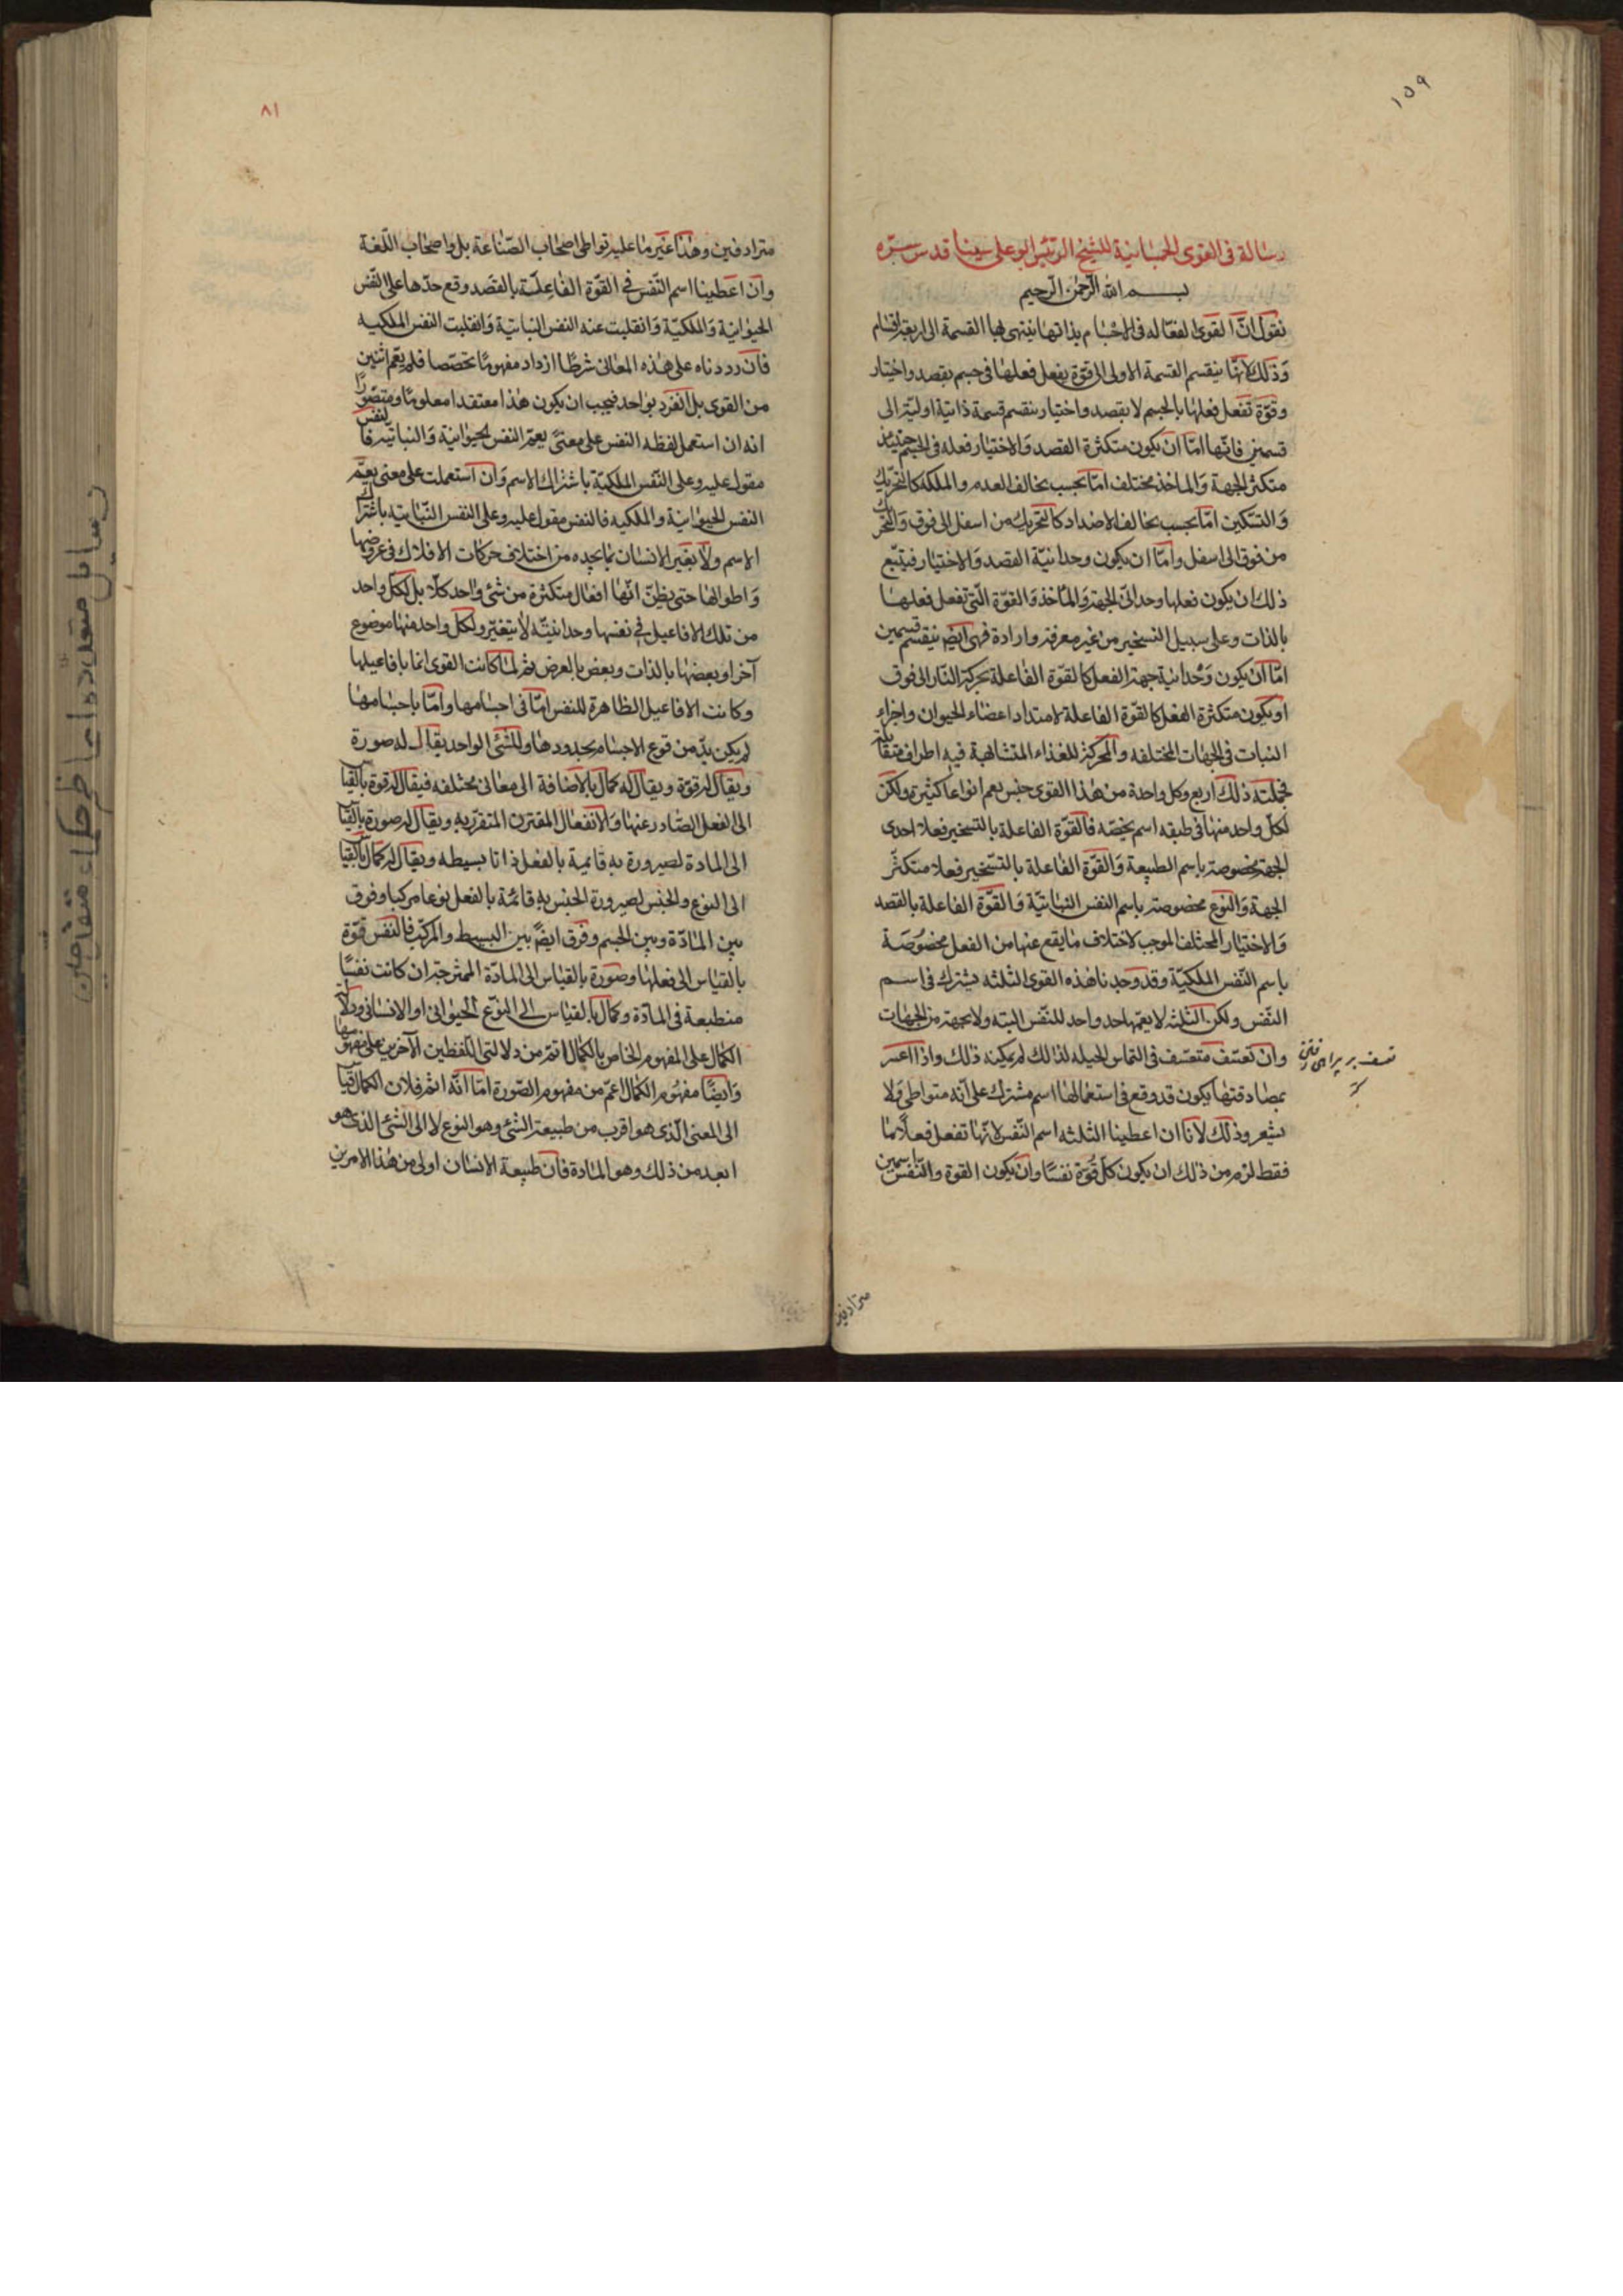 ١٥٩
رسالة فى القوى الجسمانية للشيخ الرئيس ابو على سينا قدس سره
بسم الله الرحمن الرحيم
نقول انّ القوى الفعّاله فى الاجسام بذاتها ينتهى بها القسمة الى اربعة اقسام
وذلك لانّها ينقسم القسمة الاولى الى قوّة يفعل فعلها فى جسم بقصد واختيار
وقوّة تفعل فعلها بالجسم لا بقصد واختيار ينقسم قسمة ذاتية اوليّة الى
قسمين فانّها امّا ان يكون متكثرة القصد والاختيار فعله فى الجسم حينئذ
متكثر الجهة والماخذ مختلف امّا بحسب تخالف العدم والملكه كالتحريك
والتسكين امّا بحسب تخالف الاضداد كالتحريك من اسفل الى فوق والتحرك
من فوق الى اسفل وامّا ان يكون وحدانيّة القصد والاختيار فيتبع
ذلك ان يكون فعلها وحدانىّ الجهة والمأخذ والقوّة الّتى تفعل فعلها
بالذات وعلى سبيل التسخير من غير معرفة وارادة فهى ايض ينقسم قسمين
امّا ان يكون وحدانية جهة الفعل كالقوّة الفاعلة بحركة النار الى فوق
او يكون متكثرة الفعل كالقوّة الفاعلة لامتداد اعضاء الحيوان واجزاء
النبات فى الجهات المختلفه والمحركة للغذاء المتشابهة فيه اطراف متقابلة
فجملته ذلك اربع وكل واحدة من هذا القوى جنس يعم انواعا كثيرة ولكن
لكل واحد منها فى طبقه اسم يخصّه فالقوّة الفاعلة بالتسخير فعلا احدى
الجهة مخصوصة باسم الطبيعة والقوّة الفاعلة بالتسخير فعلا متكثّر
الجهة والنوع مخصوصة باسم النفس النباتيّة والقوّة الفاعلة بالقصد
والاختيار المختلف الموجب لاختلاف ما يقع عنها من الفعل مخصوصة
باسم النّفس الملكيّة وقد وجدنا هذه القوى الثلثه يشترك فى اسم
النّفس ولكن الثلثه لا يعمّها حد واحد للنّفس البته ولا بجهة من الجهات
وان تعسّف متعسّف فى التماس الحيله لذالك لم يمكنه ذلك واذا اعسر
بمصادفتها يكون قد وقع فى استعمالها اسم مشترك على انّه متواطى ولا
يشعر وذلك لانّا ان اعطينا الثلثه اسم النّفس لانّها تفعل فعلا ما
فقط لزم من ذلك ان يكون كلّ قوّة نفسًا وان يكون القوة والنّفس اسمين
مترادفين
٨١
مترادفين وهذا غير ما عليه تواطى اصحاب الصّناعة بل واصحاب اللّغة
وان اعطينا اسم النّفس فى القوّة الفاعلة بالقصد وقع حدّها على النّفس
الحيوانية والملكيّة وانفلبت عنه النفس النباتيّة وانفلبت النفس الملكيه
فان رددناه على هذه المعانى شرطا ازداد مفهومًا تخصّصا فلم يعّم اثنين
من القوى بل انفرد بواحد فيجب ان يكون هذا معتقدا معلومًا ومتصوّرًا
انه ان استعمل لفظه النفس على معنىً يعمّ النفس الحيوانية والنباتية فالنفس
مقول عليه وعلى النّفس الملكيّة باشتراك الاسم وان استعملت على معنى يعمّ
النفس الحيوانية والملكيه فالنفس مقول عليه وعلى النفس النّباتيه باشتراك
الاسم ولا يغير الانسان بما يجده من اختلاف حركات الافلاك فى عروضها
واطوالها حتى يظنّ انّها افعال متكثرة من شئ واحد كلا بل لكلّ واحد
من تلك الافاعيل فى نفسها وحدانيّة لا يتغيّر ولكل واحد منها موضوع
آخر او بعضها بالذات وبعض بالعرض ثم لمّا كانت القوى انما بافاعيلها
وكانت الافاعيل الظاهرة للنفس امّا فى اجسامها وامّا باجسامها
لم يكن بدّ من وقوع الاجسام بحدودها وللشئ الواحد يقال له صورة
ويقال له قوّة ويقال له كمال بالاضافة الى معانى مختلفه فيقال له قوة بالقياس
الى الفعل الصّادر عنها والانفعال المقترن المتقرّر به ويقال له صورة بالقياس
الى المادة لصيرورة به قائمية بالفعل ذاتا بسيطه ويقال له كمال بالقياس
الى النوع والجنس لصيرورة الجنس به قائمة بالفعل نوعا مركبا وفوق
بين المادّة وبين الجسم وفرق ايضً بين البسيط والمركّب فالنّفس قوّة
بالقياس الى فعلها وصورة بالقياس الى المادّة الممتزجة ان كانت نفسًا
منطبعة فى المادّة وكمال بالقياس الى النّوع الحيوانى او الانسانى ودلالة
الكمال على المفهوم الخاص بالكمال اتم من دلالتى اللّفظين الآخرين على مفهومهما
وايضًا مفهوم الكمال اعمّ من مفهوم الصّورة امّا انّه اتم فلان الكمال قياس
الى المعنى الّذى هو اقرب من طبيعة الشئ وهو النوع لا الى الشئ الذى هو
ابعد من ذلك وهو المادة فان طبيعة الانسان اولى من هذا الامرين